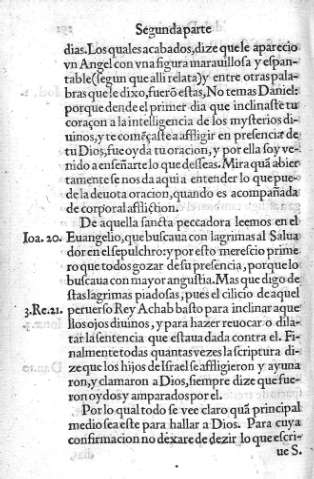 Segunda parte
dias. Los quales acabados, dize que le aparecio
vn Angel con vna figura marauillosa y espan-
table (segun que alli relata) y entre otras pala-
bras que le dixo, fuerõ estas, No temas Daniel:
porque dende el primer dia que inclinaste tu
coraçon a la intelligencia de los mysterios di-
uinos, y te comẽçaste a affligir en presencia de
tu Dios, fue oyda tu oracion, y por ella soy ve-
nido a enseñarte lo que desseas. Mira quã abier
tamente se nos da aqui a entender lo que pue-
de la deuota oracion, quando es acompañada
de corporal affliction.
De aquella sancta peccadora leemos en el
Ioa. 20. Euangelio, que buscaua con lagrimas al Salua
dor en el sepulchro: y por esto merescio prime
ro que todos gozar de su presencia, porque lo
buscaua con mayor angustia. Mas que digo de
stas lagrimas piadosas, pues el cilicio de aquel
3.Re.21. peruerso Rey Achab basto para inclinar aque
llos ojos diuinos, y para hazer reuocar o dila-
tar la sentencia que estaua dada contra el. Fi-
nalmente todas quantas vezes la scriptura di-
ze que los hijos de Israel se affligieron y ayuna
ron, y clamaron a Dios, siempre dize que fue-
ron oydos y amparados por el.
Por lo qual todo se vee claro quã principal
medio sea este para hallar a Dios. Para cuya
confirmacion no dexare de dezir lo que escri-
ue S.